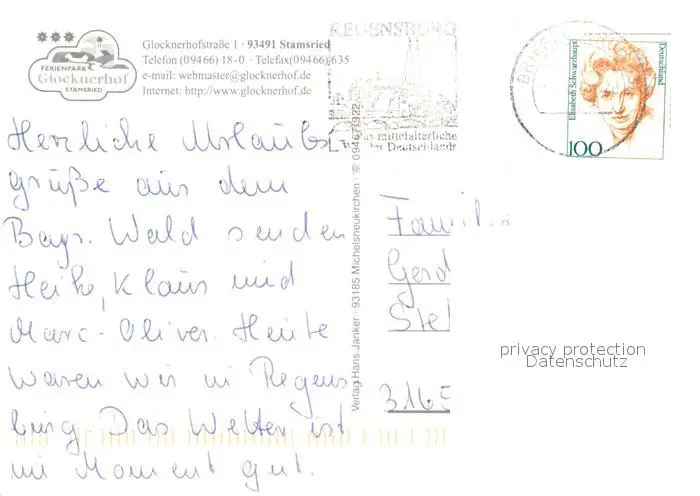 FERIENPARK
Glocknerhof
STAMSRIED
Glocknerhofstraße 1 · 93491 Stamsried
Telefon (09466) 18-0 · Telefax (09466) 635
e-mail: webmaster@glocknerhof.de
Internet: http://www.glocknerhof.de
REGENSBURG
mittelalterliche
Deutschlands
Elisabeth Schwarzhaupt
Deutschland
100
Herzliche Urlaubs
grüße aus dem
Bayr. Wald senden
Heike, Klaus und
Marc-Oliver. Heute
waren wir in Regens
burg. Das Wetter ist
im Moment gut.
Verlag Hans Janker · 93185 Michelsneukirchen · ✆ 09467/922
Famili
Gerd
Ste
3165
privacy protection
Datenschutz